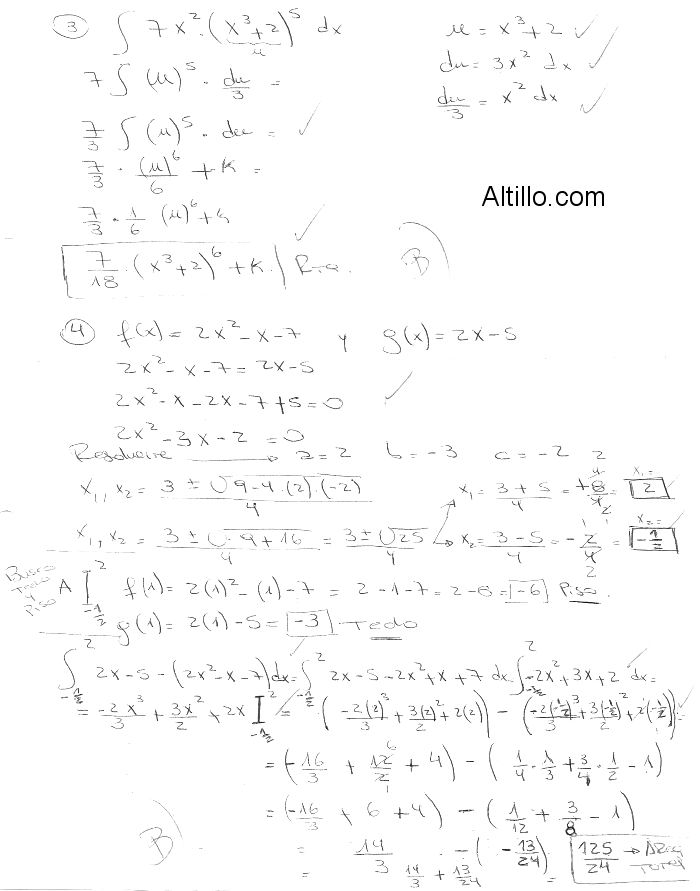 ③ ∫ 7x²·(x³+2)⁵ dx    u = x³+2 ✓
u
7 ∫ (u)⁵ · du/3 =    du = 3x² dx ✓
du/3 = x² dx ✓
7/3 ∫ (u)⁵ · du = ✓
7/3 · (u)⁶/6 + K =
Altillo.com
7/3 · 1/6 (u)⁶ + K
7/18 · (x³+2)⁶ + K Rta. B
④ f(x) = 2x² - x - 7 y g(x) = 2x - 5
2x² - x - 7 = 2x - 5
2x² - x - 2x - 7 + 5 = 0 ✓
2x² - 3x - 2 = 0
Resolvente → a = 2 b = -3 c = -2
x₁, x₂ = 3 ± √9-4·(2)·(-2) / 4    x₁ = 3+5/4 = +8/4 = x₁= 2
x₁, x₂ = 3 ± √9+16 / 4 = 3 ± √25 / 4    x₂ = 3-5/4 = -2/4 = x₂= -1/2
Busco Techo y Piso
A I 2 -1/2 f(1) = 2(1)² - (1) - 7 = 2 - 1 - 7 = 2 - 8 = -6 Piso.
g(1) = 2(1) - 5 = -3 Techo
∫ 2 -1/2 2x - 5 - (2x² - x - 7) dx = ∫ 2 -1/2 2x - 5 - 2x² + x + 7 dx = ∫ 2 -1/2 -2x² + 3x + 2 dx =
= -2x³/3 + 3x²/2 + 2x I 2 -1/2 = (-2(2)³/3 + 3(2)²/2 + 2(2)) - (-2(-1/2)³/3 + 3(-1/2)²/2 + 2(-1/2)) =
= (-16/3 + 12/2 + 4) - (1/4 · 1/3 + 3/4 · 1/2 - 1)
= (-16/3 + 6 + 4) - (1/12 + 3/8 - 1)
= 14/3 - (-13/24) = 125/24 → Area Total
= 14/3 + 13/24
B